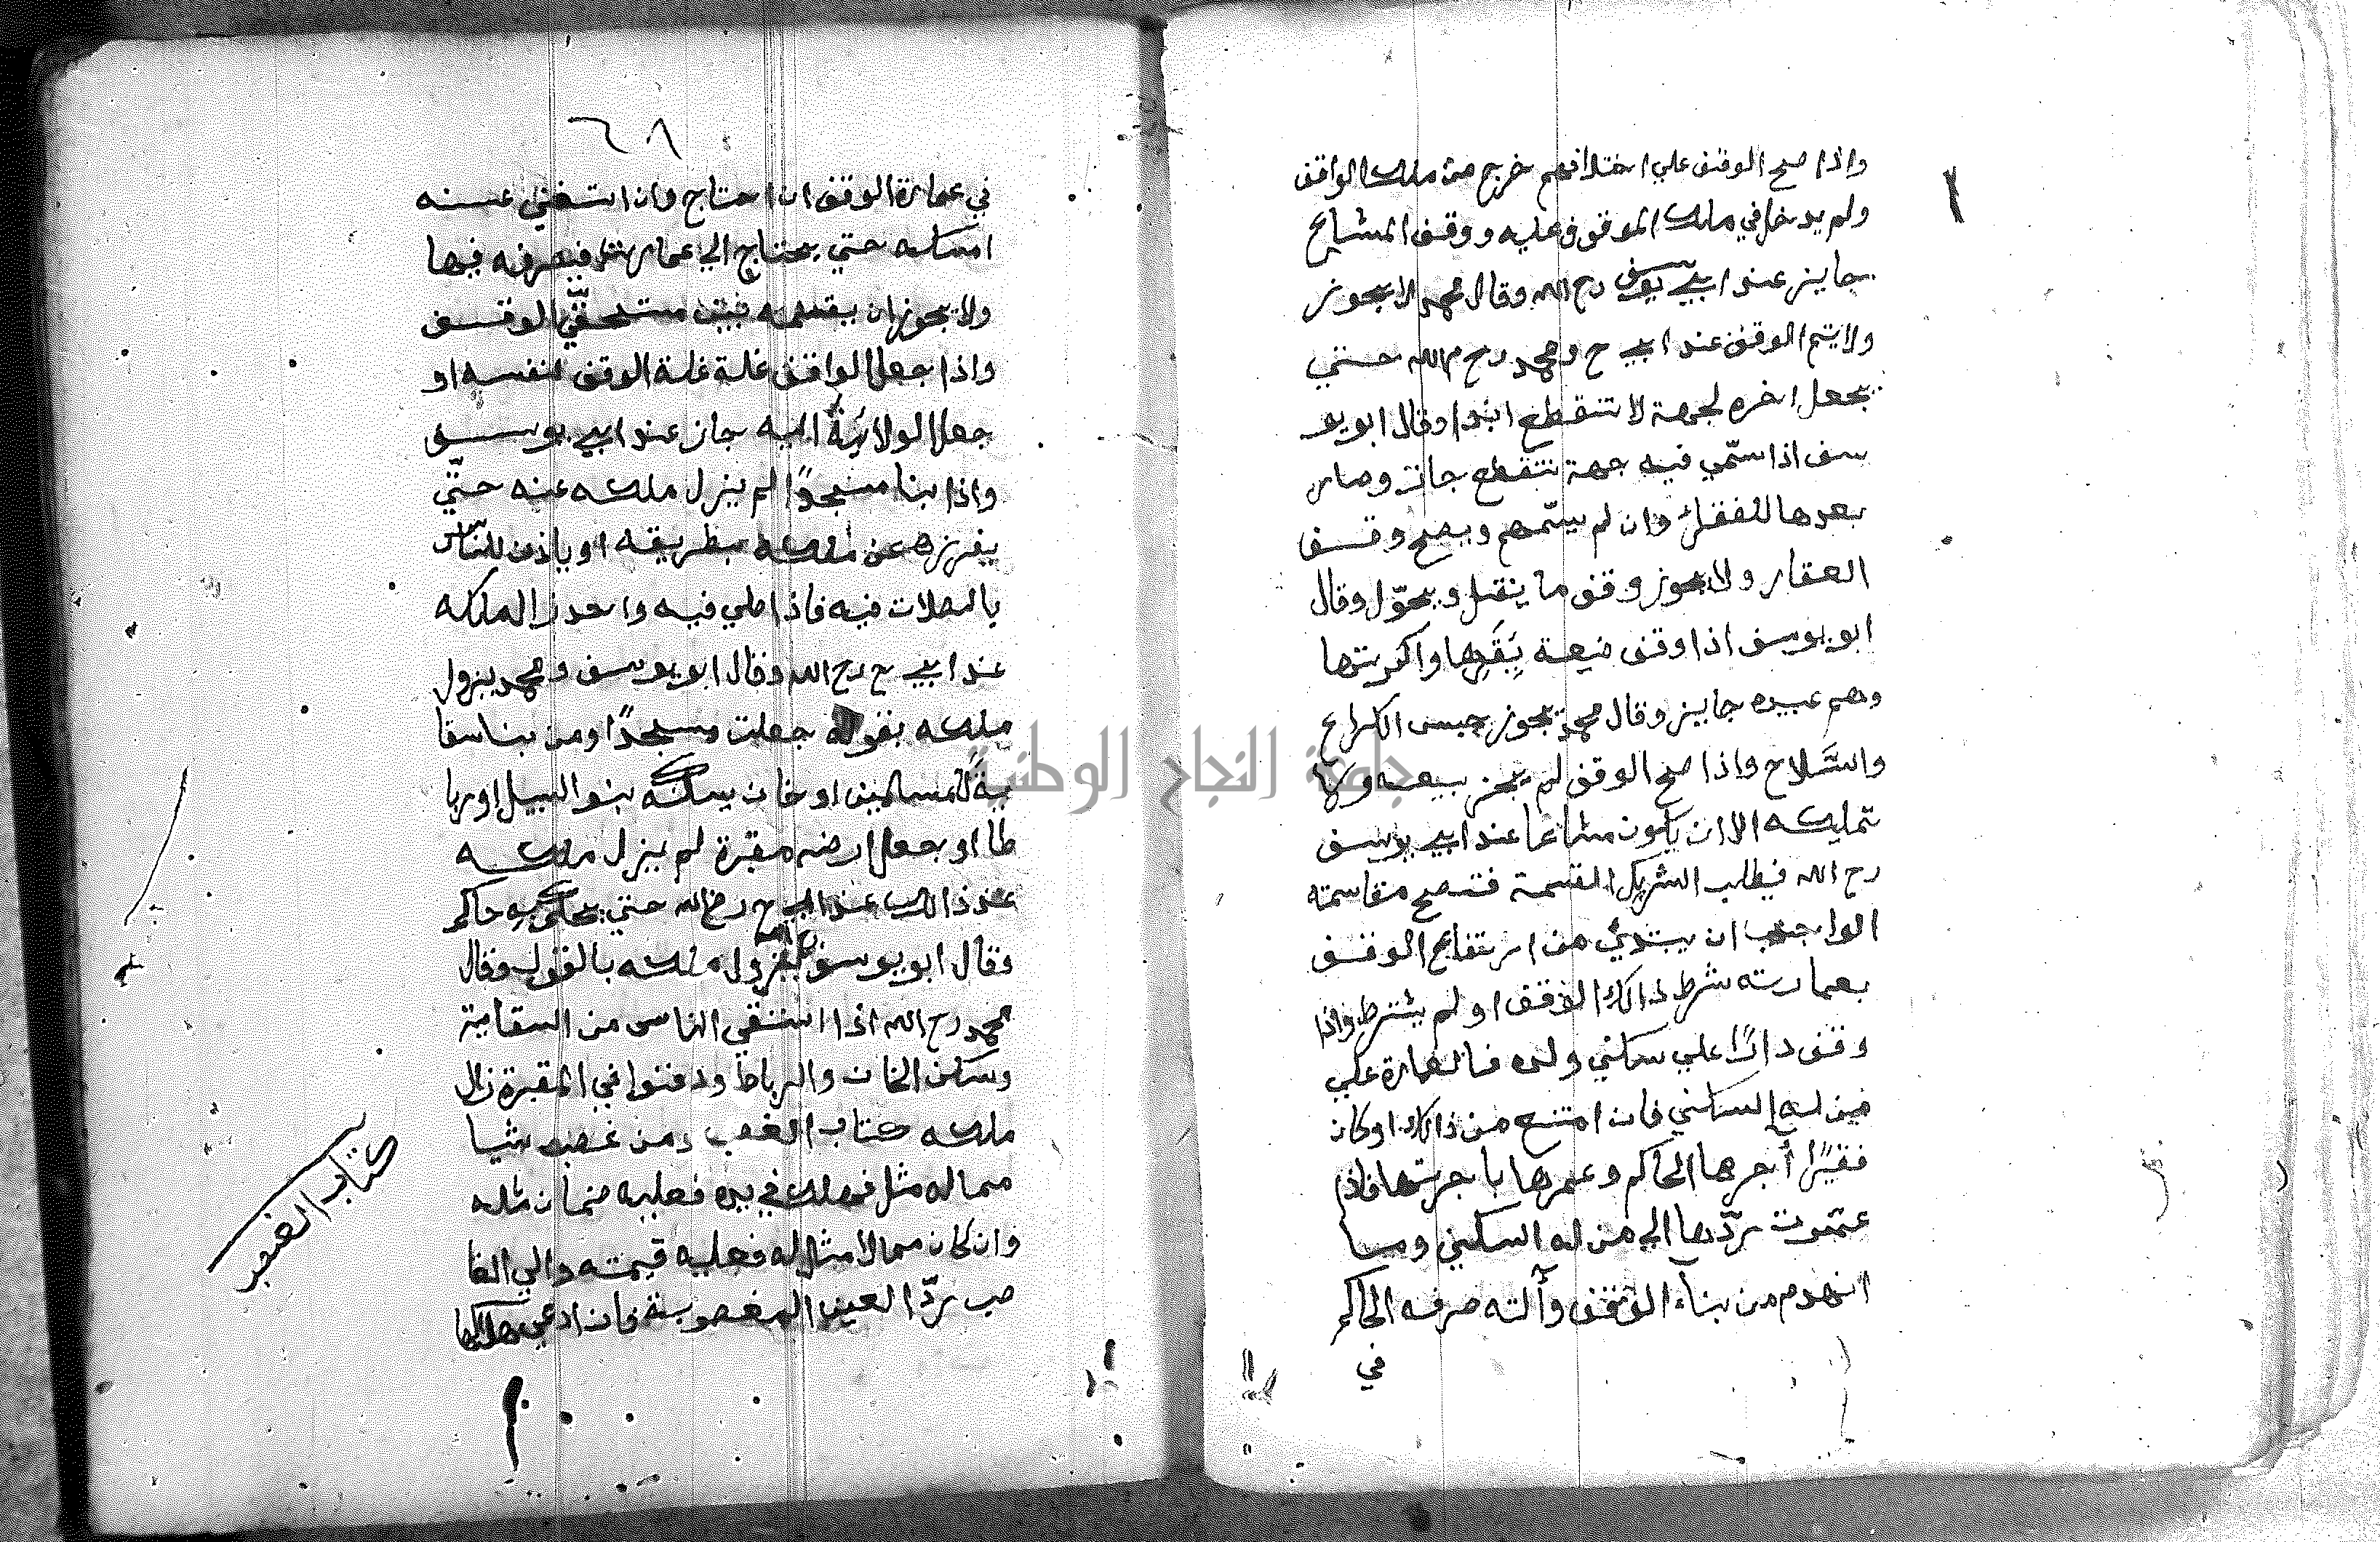 واذا صح الوقف علي اختلافهم خرج من ملك الواقف
ولم يدخل في ملك الموقوف عليه ووقف المشايع
جايز عند ابي يوسف رح الله وقال محمد لا يجوز
ولا يتم الوقف عند ابي ح ومحمد رحمهالله حتي
يجعل اخره لجهة لا تنقطع ابدا وقال ابو يو
سف اذا سمّي فيه جهة تنقطع جاز وصار
بعدها للفقراء وان لم يسمّهم ويصح وقف
العقار ولا يجوز وقف ما ينقل ويحوّل وقال
ابو يوسف اذا وقف ضيعة بِبَقَرِها واكريتها
وهم عبيده جايز وقال محمد يجوز حبس الكراع
والسَّلاح واذا صح الوقف لم يجز بيعه ولا
تمليكه الا ان يكون مشاعا عند ابي يوسف
رح الله فيطلب الشريك القسمة فتصح مقاسمته
الواجب ان يبتدئ من ارتفاع الوقف
بعمارته شرط ذالك الوقف او لم يشترط واذا
وقف دارًا علي سكني ولده فالعمارة علي
مين له السكني فان امتنع من ذالك او كان
فقيرًا أجرها الحاكم وعمرها باجرتها فاذا
عمّرت ردّها الي من له السكني وما
انهدم من بناء الوقف وآلته صرفه الحاكم
في
جامعة النجاح الوطنية
٦٨
في عمارة الوقف ان احتاج وان استغني عنه
امسكه حتي يحتاج الي عمارته فيصرفه فيها
ولا يجوز ان يقسمه بين مستحقّي الوقف
واذا جعل الواقف غلة غلة الوقف لنفسه او
جعل الولايَةَ اليه جاز عند ابي يوسف
واذا بنا مسجدًا لم يزل ملكه عنه حتّي
يفرزه عن ملكه بطريقه او ياذن للنّاس
بالصلات فيه فاذا صلي فيه واحد زال ملكه
عند ابي ح رح الله وقال ابو يوسف ومحمد يزول
ملكه بقوله جعلت مسجدًا ومن بنا سقا
يةً للمسلمين او خان يسكنه بنو السبيل او ربا
طا او جعل ارضه مقبرة لم يزل ملكه
عند ذالك عند ابي ح رح الله حتي يحكم به حاكم
وقال ابو يوسف يزول ملكه بالقول وقال
محمد رح الله اذا استقي الناس من السقاية
وسكن الخان والرباط ودفنوا في المقبرة زال
ملكه كتاب الغصب ومن غصب شيا
مما له مثل فهلك في يده فعليه ضمان مثله
وان كان مما لا مثال له فعليه قيمته والي الغا
صب ردّ العين المغصوبة فان ادعي هلاكها
كتاب الغصب